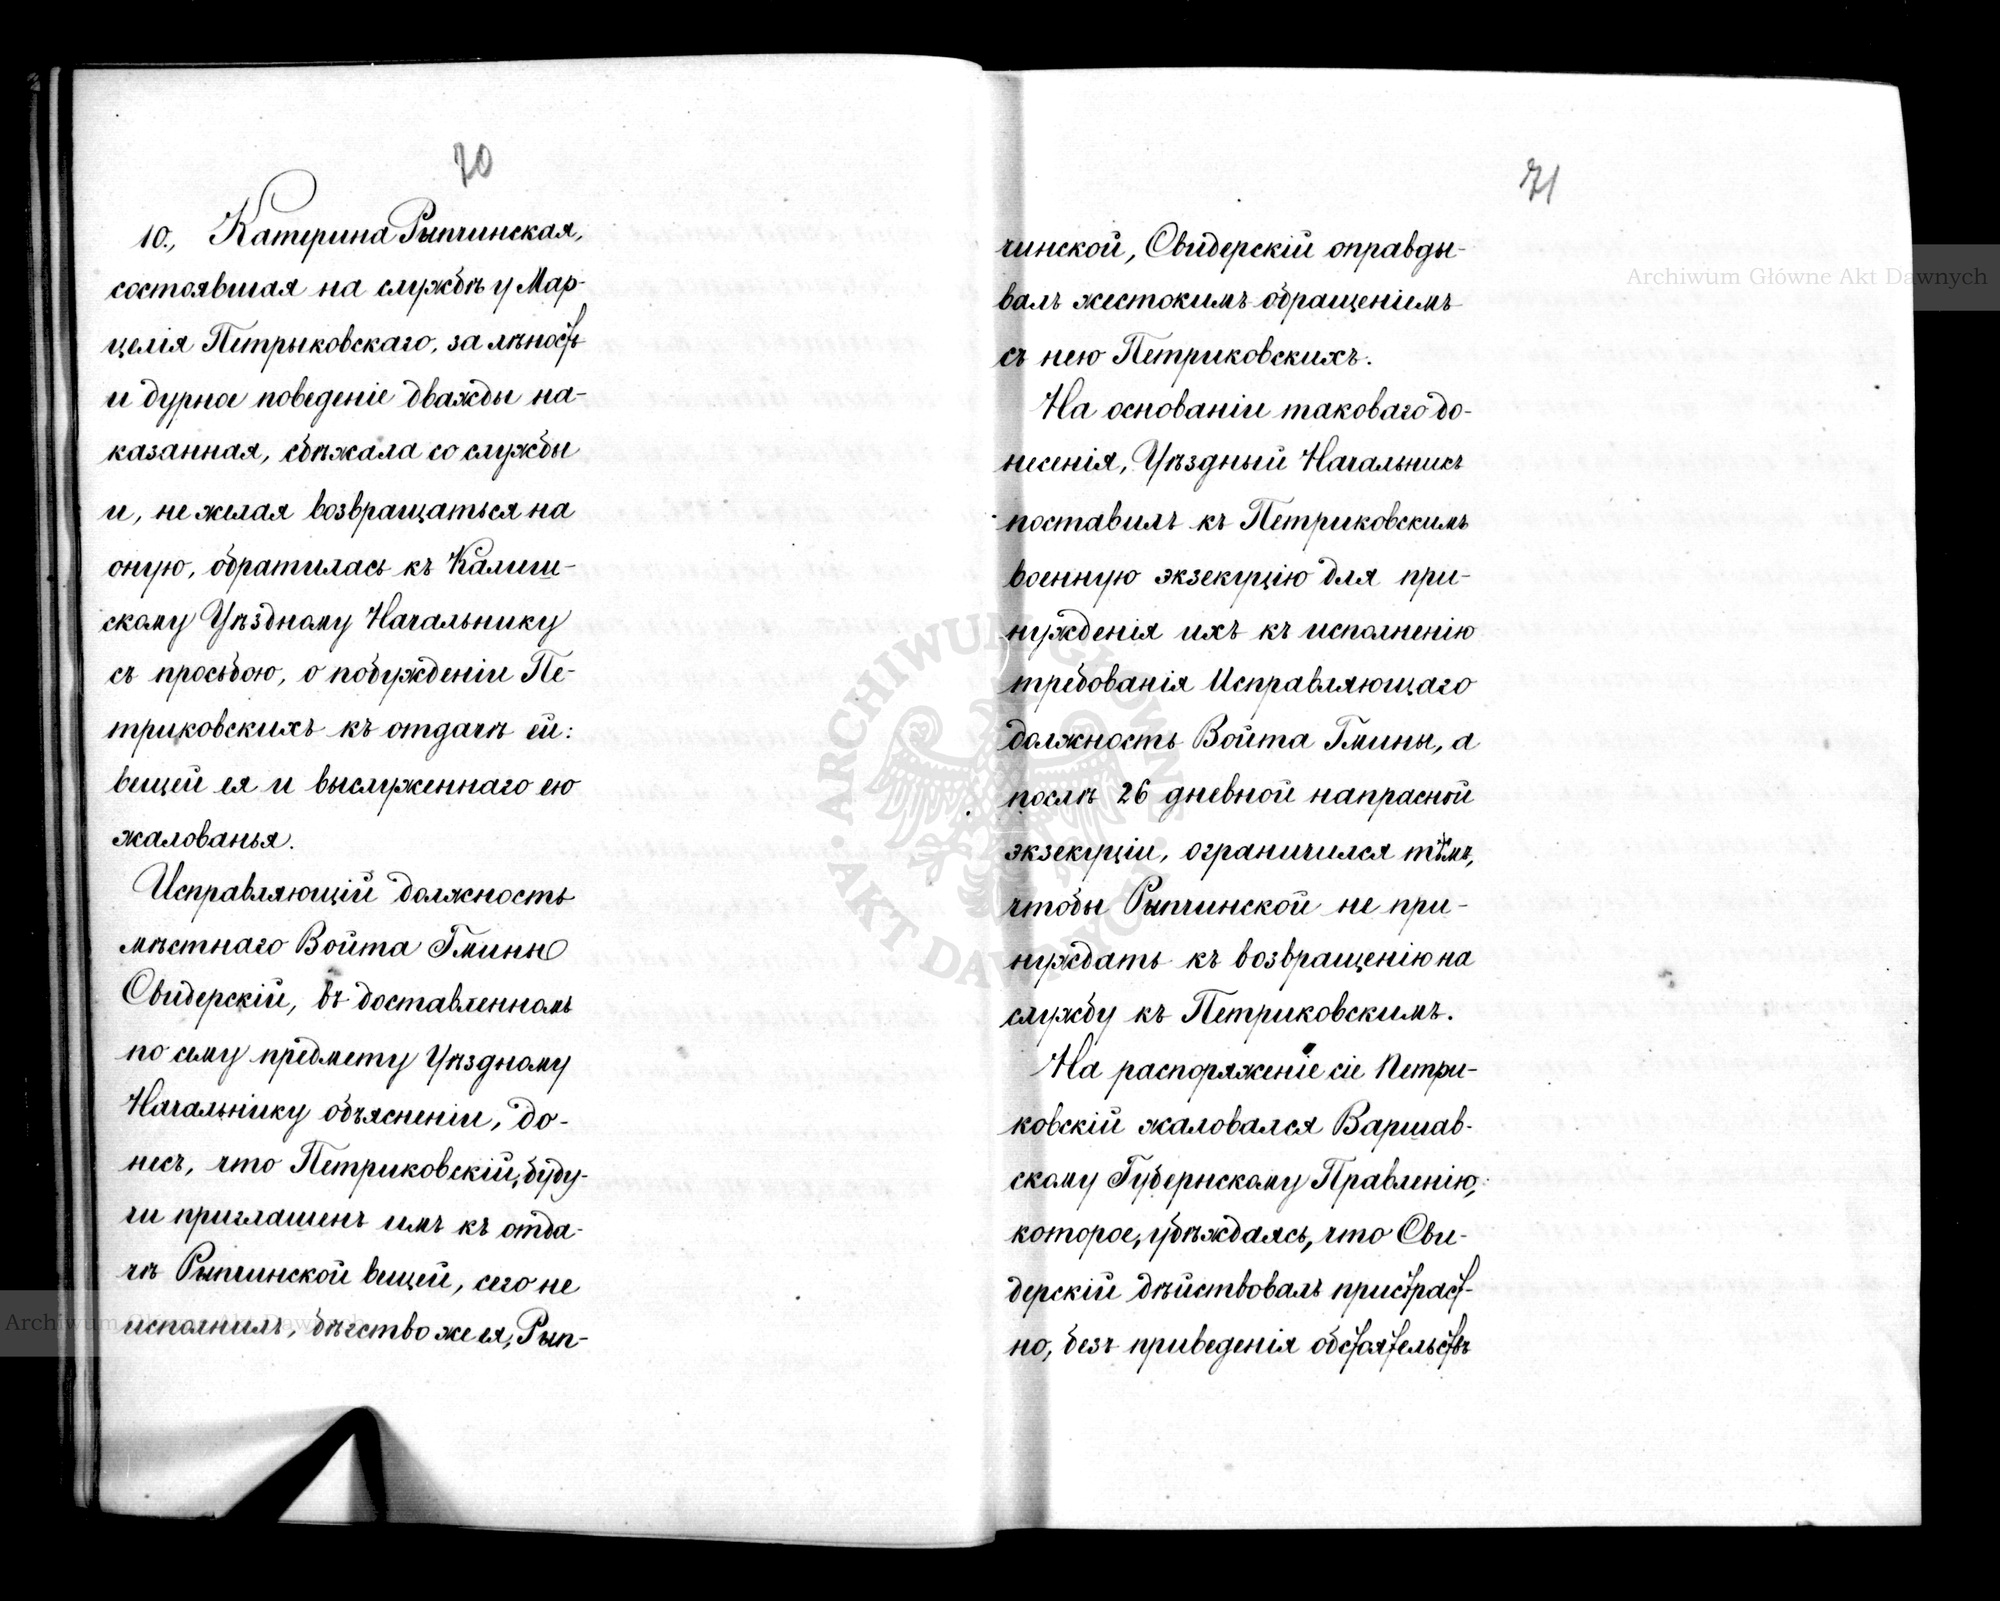 70
10., Катерина Рыпчинская,
состоявшая на службѣ у Мар-
целія Петрыковскаго, за лѣность
и дурное поведеніе дважды на-
казанная, сбѣжала со службы
и, не желая возвращаться на
оную, обратилась къ Калиш-
скому Уѣздному Начальнику
съ просьбою, о побужденіи Пе-
триковскихъ къ отдачѣ ей:
вещей ея и выслуженнаго ею
жалованья.
Исправляющій должность
мѣстнаго Войта Гмины
Свидерскій, въ доставленномъ
по сему предмету Уѣздному
Начальнику объясненіи, до-
несъ, что Петриковскій, буду-
чи приглашенъ имъ къ отда-
чѣ Рыпчинской вещей, сего не
исполнилъ, бѣгство же ея, Рып-
71
чинской, Свидерскій оправды-
валъ жестокимъ обращеніемъ
съ нею Петриковскихъ.
На основаніи таковаго до-
несенія, Уѣздный Начальникъ
поставилъ къ Петриковскимъ
военную экзекуцію для при-
нужденія ихъ къ исполненію
требованія Исправляющаго
должность Войта Гмины, а
послѣ 26 дневной напрасной
экзекуціи, ограничился тѣмъ,
чтобы Рыпчинской не при-
нуждать къ возвращенію на
службу къ Петриковскимъ.
На распоряженіе сіе Петри-
ковскій жаловался Варшав-
скому Губернскому Правленію,
которое, убѣждаясь, что Сви-
дерскій дѣйствовалъ пристраст-
но, безъ приведенія обстоятельствъ
Archiwum Główne Akt Dawnych
ARCHIWUM GŁÓWNE
AKT DAWNYCH
Archiwum Główne Akt Dawnych